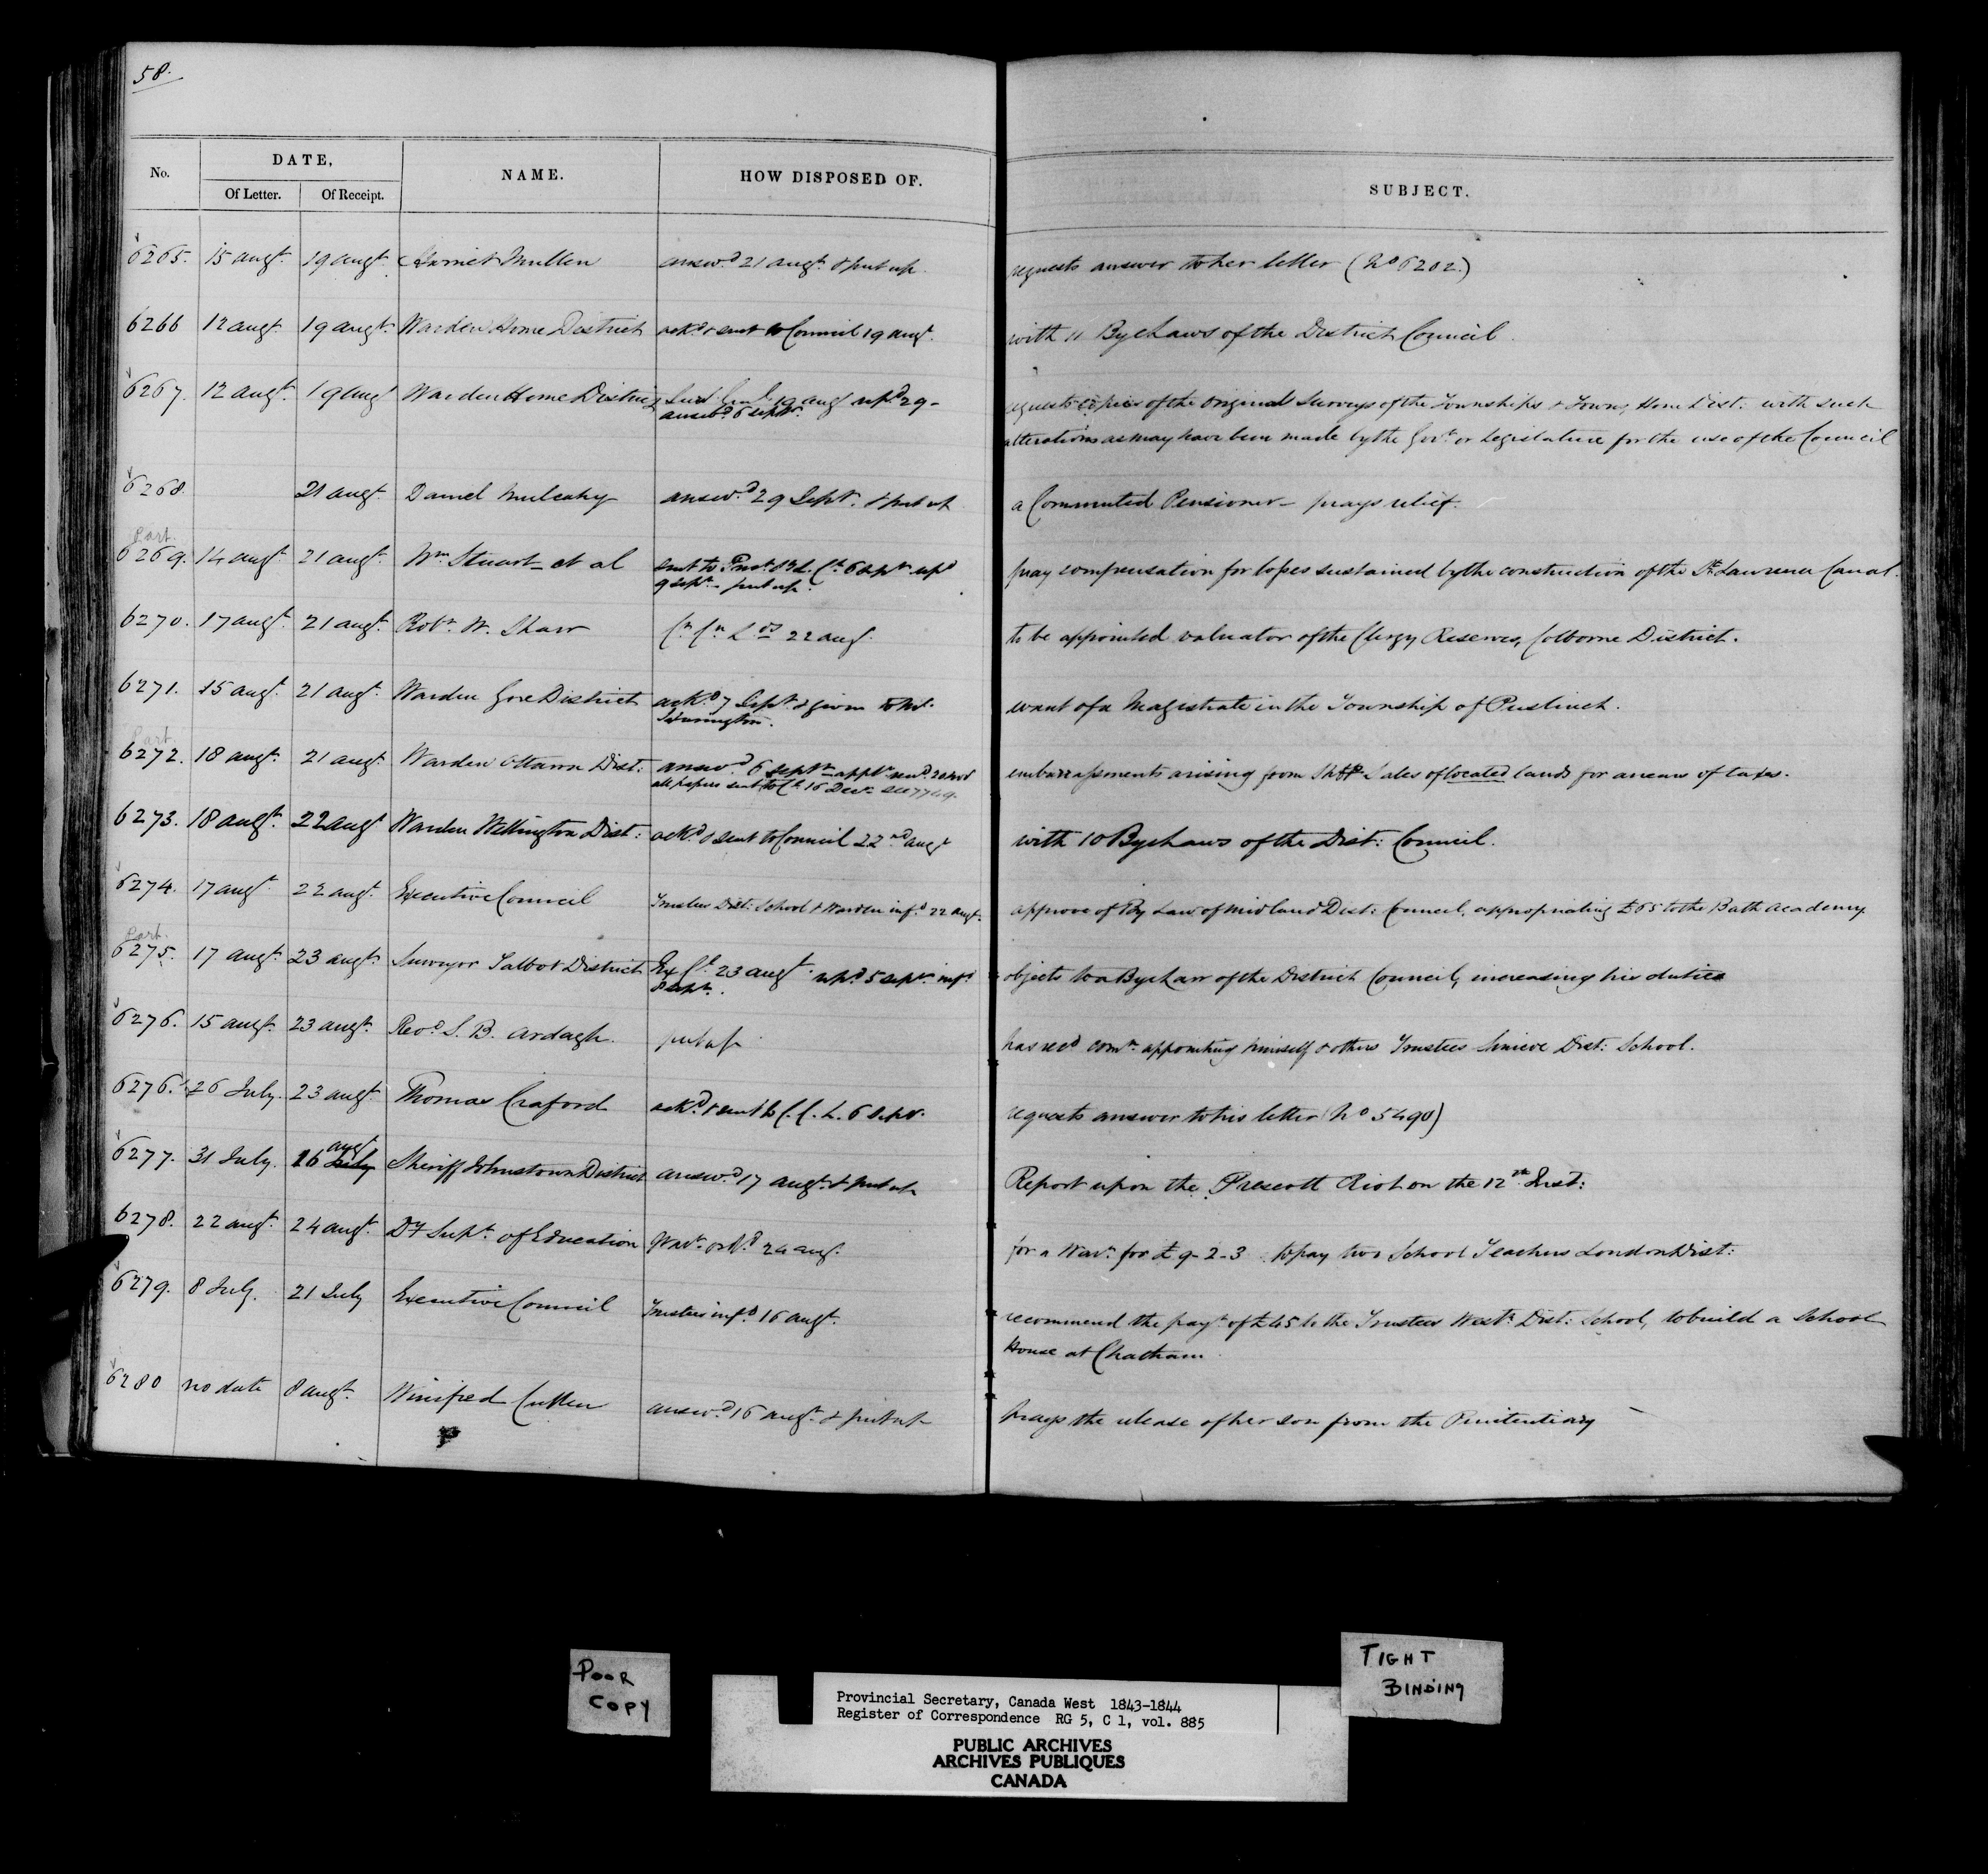 58.
No. DATE, NAME. HOW DISPOSED OF. SUBJECT.
Of Letter. Of Receipt.
6265. 15 augt. 19 augt. Harriet Mullen answd. 21 augt. & put up. requests answer to her letter (No 6202.)
6266 12 augt. 19 augt. Warden Home District ackd & sent to Council 19 augt. with 11 Bye Laws of the District Council.
6267. 12 augt. 19 augt Warden Home District 19 augt repd 29 - requests copies of the original Surveys of the Townships & Towns, Home Dist: with such
answd 6 septr. alterations as may have been made by the Govt. or Legislature for the use of the Council
6268. 21 augt. Daniel Mulcahy answd. 29 Septr. & put up a Commuted Pensioner - prays relief.
Part.
6269. 14 augt 21 augt. Wm Stuart et al sent to 6 septr repd pray compensation for losses sustained by the construction of the St. Lawrence Canal.
9 septr - put up.
6270. 17 augt. 21 augt. Robt. W. Shaw Cn Cn Lds 22 augt. to be appointed valuator of the Clergy Reserves, Colborne District.
6271. 15 augt. 21 augt. Warden Gore District ackd. 7 Septr & given to Mr. want of a Magistrate in the Township of Puslinch.
Part.
6272. 18 augt. 21 augt. Warden Ottawa Dist: answd. 6 septr embarrassments arising from Shff Sales of located lands for arrears of taxes.
all papers sent to 16 Decr. see 7749.
6273. 18 augt. 22 augt Warden Wellington Dist: ackd & sent to Council 22nd augt with 10 Bye Laws of the Dist: Council.
6274. 17 augt. 22 augt. Executive Council Trustees Dist: School & Warden infd 22 augt. approve of By Law of Midland Dist: Council, appropriating £65 to the Bath Academy
Part.
6275. 17 augt. 23 augt. Surveyor Talbot District Ex Cl. 23 augt. repd 5 septr. infd objects to a Bye Law of the District Council, increasing his duties
8 septr.
6276. 15 augt. 23 augt. Revd. S. B. Ardagh. put up has recd comn. appointing himself & others Trustees Simcoe Dist: School.
6276. 26 July. 23 augt. Thomas Craford ackd & sent to C. C. L. 6 Septr. requests answer to his letter (No 5490)
augt
6277. 31 July. 16 July Sheriff Johnstown District answd. 17 augt. & put up Report upon the Prescott Riot on the 12th Inst:
6278. 22 augt. 24 augt. Dy Supt. of Education Wart. ord. 24 augt. for a Wart. for £9-2-3 to pay two School Teachers London Dist:
6279. 8 July. 21 July Executive Council Trustees infd. 16 augt. recommend the payt. of £45 to the Trustees Westn. Dist: School, to build a School
House at Chatham.
6280 no date 8 augt. Winifred Cullen answd. 16 augt. & put up prays the release of her son from the Penitentiary
POOR
COPY
TIGHT
BINDING
Provincial Secretary, Canada West 1843-1844
Register of Correspondence RG 5, C 1, vol. 885
PUBLIC ARCHIVES
ARCHIVES PUBLIQUES
CANADA